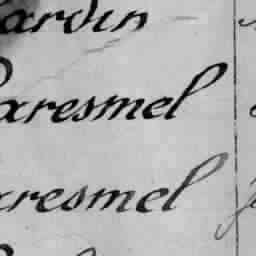 ardin
aresmel
aresmel